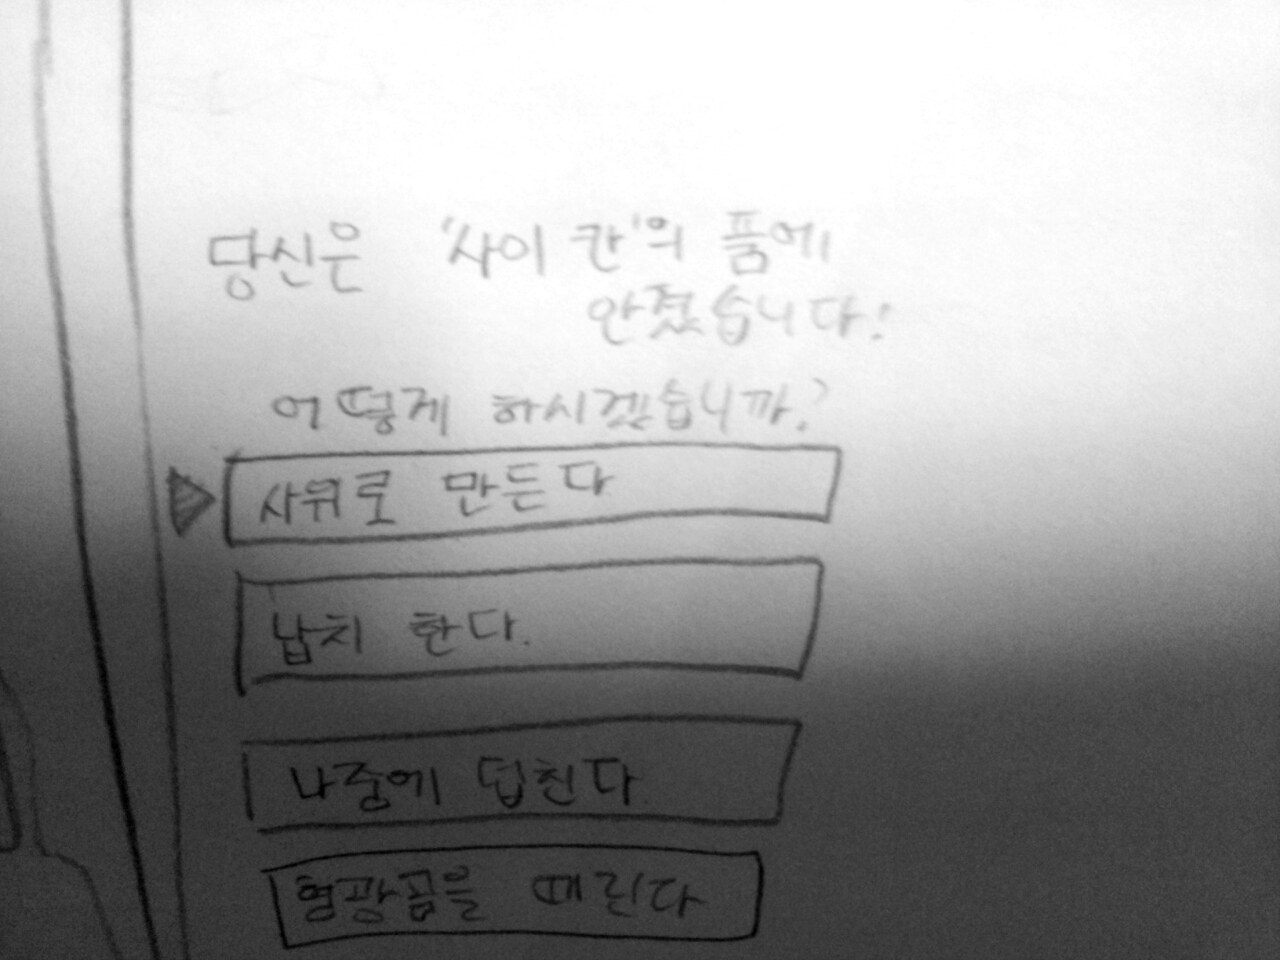 당신은 '사이 칸'의 품에
안겼습니다!
어떻게 하시겠습니까?
사위로 만든다
납치 한다.
나중에 덥친다
형광곰을 때린다